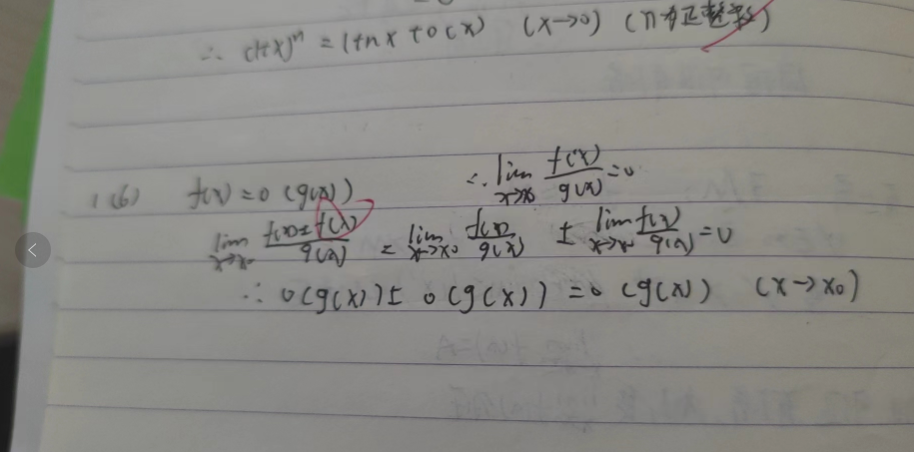 ∴ (1+x)ⁿ = 1+nx+o(x) (x→0) (n为正整数)
1(6) f(x)=o(g(x)) ∴ lim x→x₀ f(x)/g(x) =0
lim x→x₀ (f(x)±f(x))/g(x) = lim x→x₀ f(x)/g(x) ± lim x→x₀ f(x)/g(x) =0
∴ o(g(x))± o(g(x)) =o(g(x)) (x→x₀)